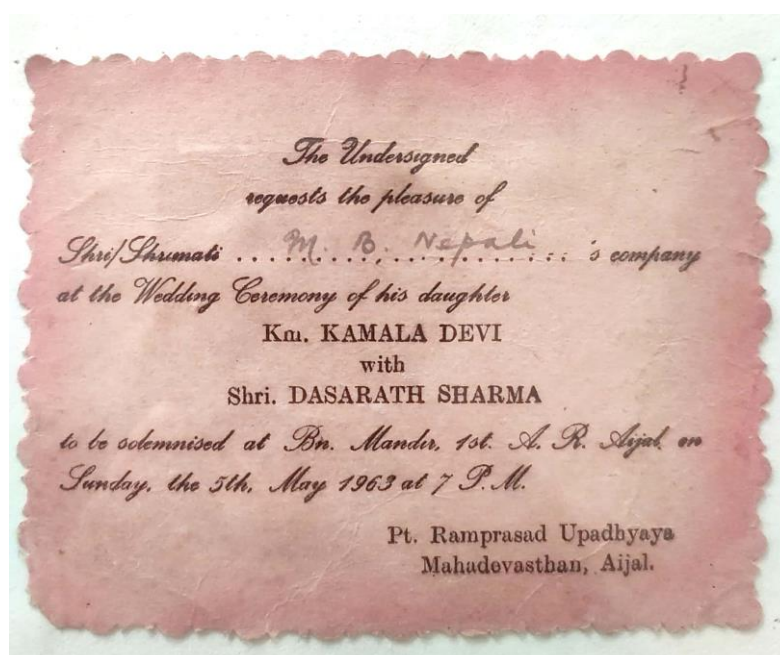 The Undersigned
requests the pleasure of
Shri/Shrimati .... M. B. Nepali .... 's company
at the Wedding Ceremony of his daughter
Km. KAMALA DEVI
with
Shri. DASARATH SHARMA
to be solemnised at Bn. Mandir, 1st. A. R. Aijal on
Sunday, the 5th, May 1963 at 7 P.M.
Pt. Ramprasad Upadhyaya
Mahadevasthan, Aijal.